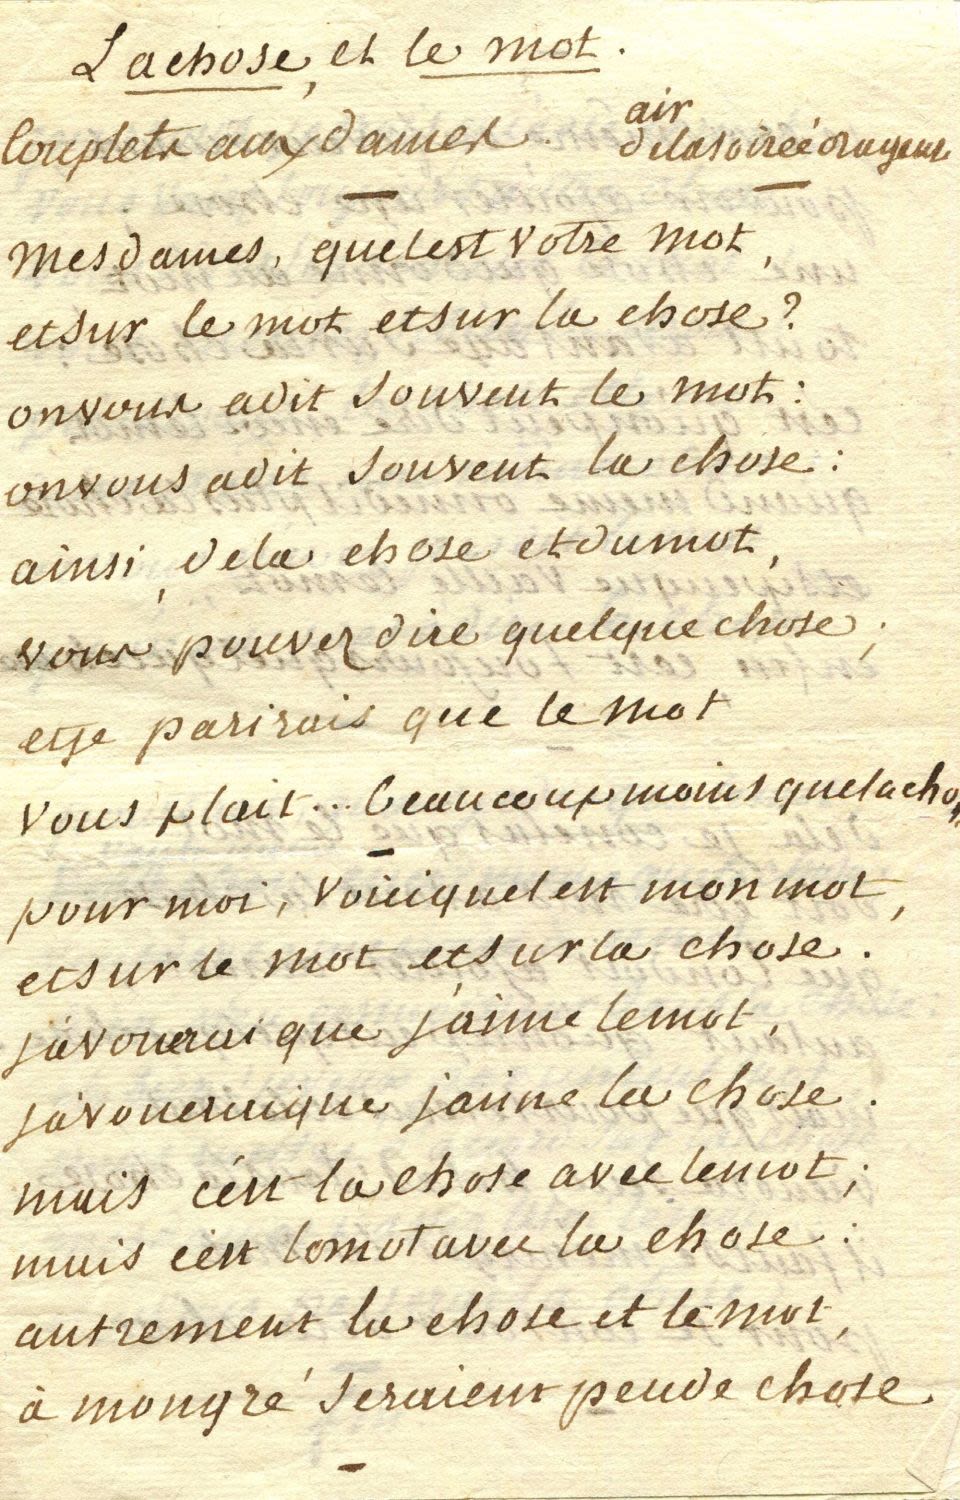 La chose, et le mot.
Couplets aux dames. air
de la soirée orageuse
mesdames, quel est votre mot,
et sur le mot et sur la chose?
on vous a dit souvent le mot:
on vous a dit souvent la chose:
ainsi, de la chose et du mot,
vous pouvez dire quelque chose;
et je parirais que le mot
vous plait... beaucoup moins que la chose
pour moi, voici quel est mon mot,
et sur le mot et sur la chose.
j'avouerai que j'aime le mot,
j'avouerai que j'aime la chose.
mais c'est la chose avec le mot;
mais c'est le mot avec la chose:
autrement la chose et le mot,
à mon gré seraient peu de chose.